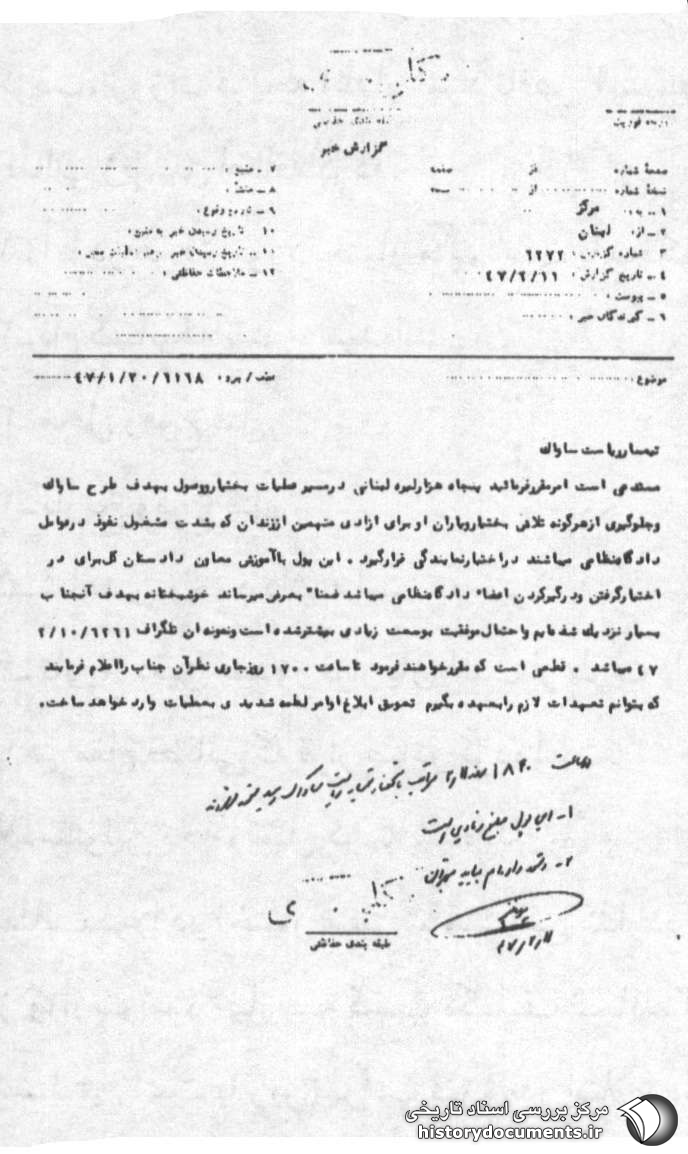 کلی ی
طبقه بندی حفاظتی
درجه فوریت
گزارش خبر
صفحهٔ شماره از صفحه
نسخهٔ شماره از نسخه
۱ ـ به: مرکز
۲ ـ از: لبنان
۳ شماره گزارش: ۶۲۷۲
۴ ـ تاریخ گزارش: ۴۷/۲/۱۱
۵ ـ پیوست:
۶ ـ گیرندگان خبر:
۷ ـ منبع:
۸ ـ منشأ:
۹ ـ تاریخ وقوع:
۱۰ تاریخ رسیدن خبر به منبع:
۱۱ ـ تاریخ رسیدن خبر
۱۲ ـ ملاحظات حفاظتی:
موضوع:
عطف / پیرو: ۴۷/۱/۲۰/۶۱۶۸
تیمسار ریاست ساواک
مستدعی است امر مقرر فرمائید پنجاه هزار لیره لبنانی در مسیر عملیات بختیار و وصول بهدف طرح ساواک
و جلوگیری از هرگونه تلاش بختیار و یاران او برای ازادی متهمین از زندان که بشدت مشغول نفوذ در عوامل
دادگاه نظامی میباشند در اختیار نمایندگی قرار گیرد . این پول با آموزش معاون دادستان کل برای در
اختیار گرفتن و درگیر کردن اعضاء دادگاه نظامی میباشد ضمنا" بعرض میرساند خوشبختانه بهدف آنجناب
بسیار نزدیک شده ایم و احتمال موفقیت بوسعت زیادی بیشتر شده است و نمونه ان تلگراف ۲/۱۰/۶۲۶۱
۴۷ میباشد . قطعی است که مقرر خواهند فرمود تا ساعت ۱۷۰۰ روز جاری نظر آن جناب را اعلام فرمایند
که بتوانم تعهدات لازم را بعهده بگیرم تعویق ابلاغ اوامر لطمه شدیدی بعملیات وارد خواهد ساخت.
ساعت ۱۸۳۰ مراتب باستحضار تیمسار ریاست ساواک رسید
۱ـ این پول مبلغ زیادی است
۲ـ
۴۷/۲/۱۱
کلی ی
طبقه بندی حفاظتی
مرکز بررسی اسناد تاریخی
historydocuments.ir